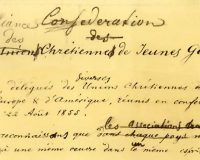 Alliance Confédération
des
des Unions Chrétiennes de Jeunes Ge
diverses
délégués des Unions Chrétiennes
Europe & d'Amérique, réunis en confé
22 Août 1855
les associations
reconnaissons que nous chaque pays
qui une même œuvre dans le même